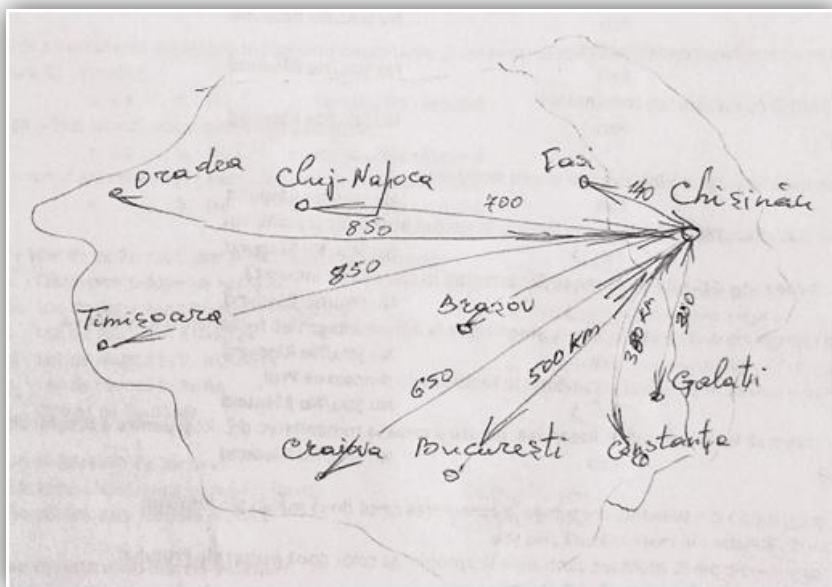 Oradea
Cluj-Napoca
Iasi
140
Chișinău
700
850
850
Timișoara
Brașov
650
500 Km
380 Km
Galați
Craiova
București
Constanța